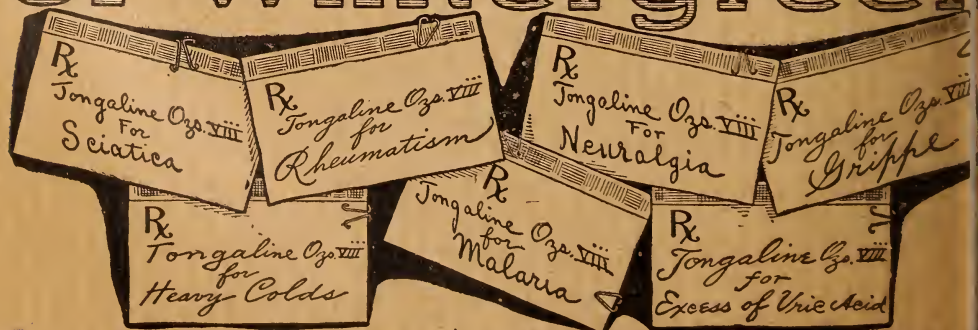 of Wintergreen
Rx
Tongaline Ozs. viii
For
Sciatica
Rx
Tongaline Ozs. viii
for
Rheumatism
Rx
Tongaline Ozs. viii
For
Neuralgia
Rx
Tongaline Ozs. viii
for
Grippe
Rx
Tongaline Ozs. viii
for
Heavy Colds
Rx
Tongaline Ozs. viii
for
Malaria
Rx
Tongaline Ozs. viii
for
Excess of Uric Acid